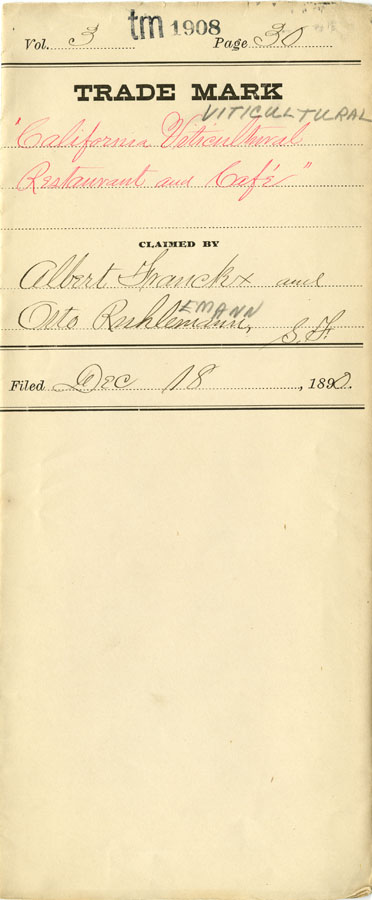 tm 1908
Vol. 3 Page 30
TRADE MARK
VITICULTURAL
"California Viticultural
Restaurant and Café"
CLAIMED BY
Albert Franckx and
EMANN
Otto Ruhlemann, S.F.
Filed Dec 18, 1890.